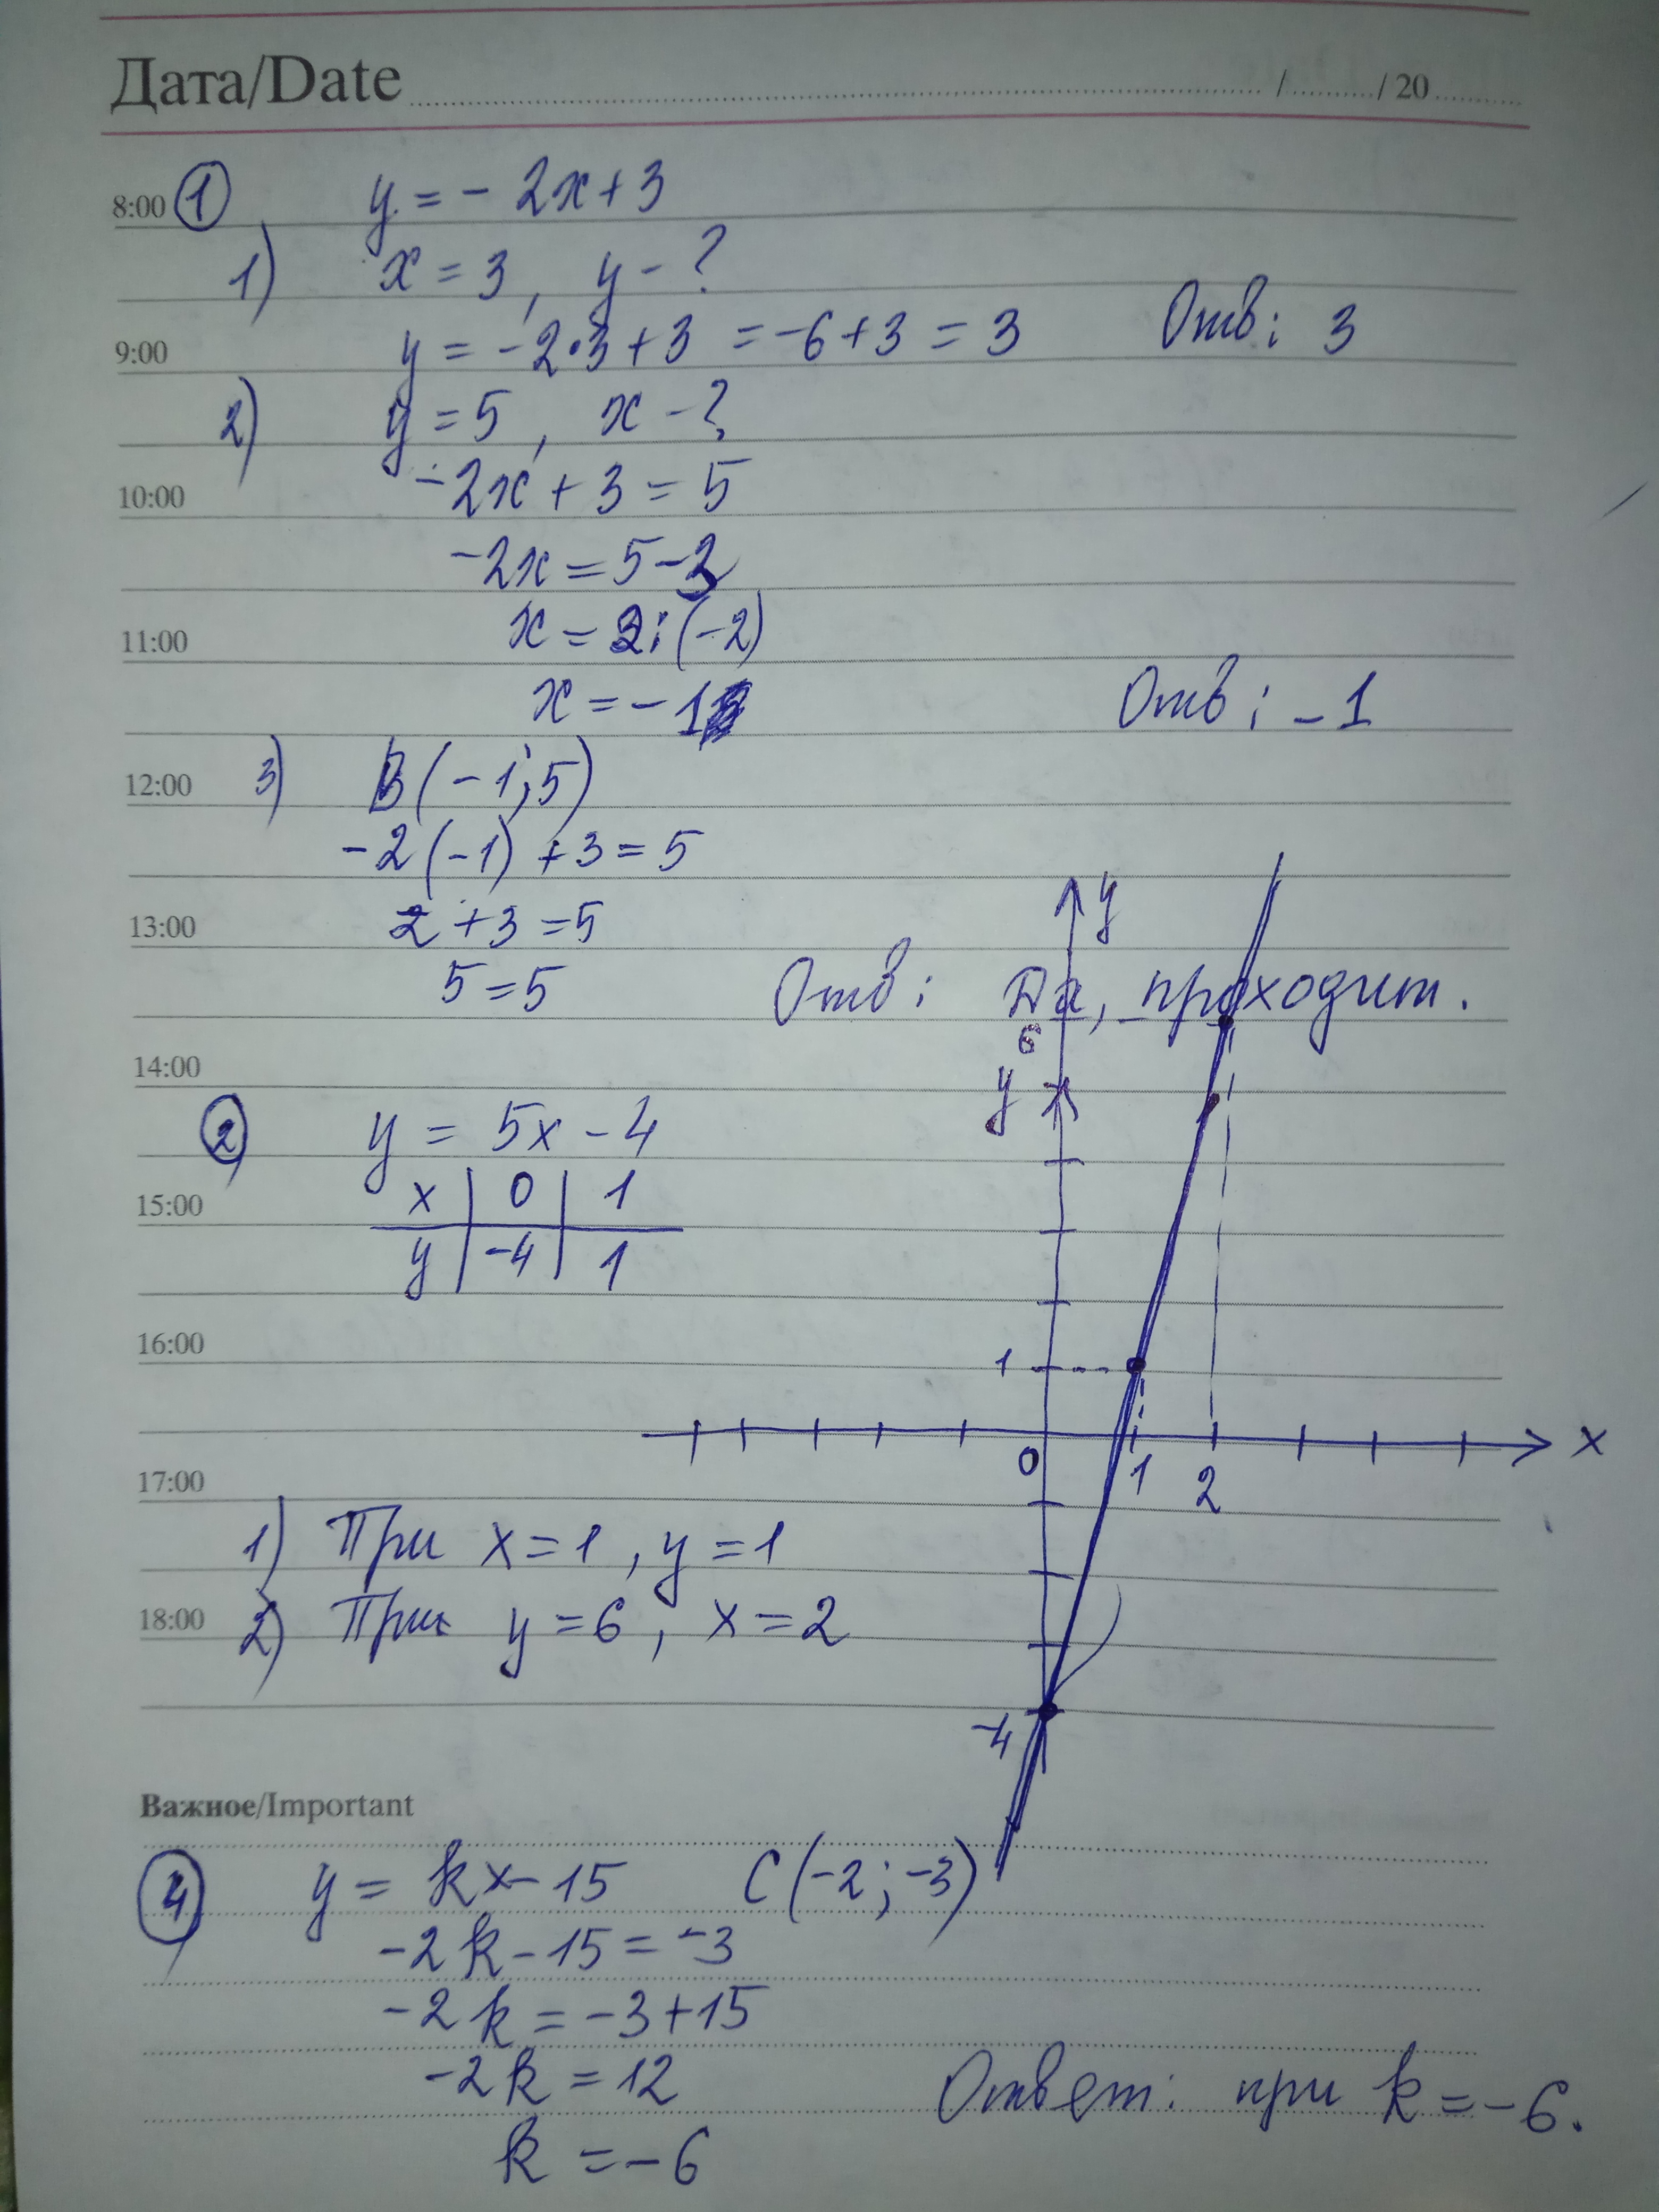 Дата/Date / / 20
8:00 ① y = - 2x + 3
1) x = 3, y - ?
9:00 y = -2·3 + 3 = -6 + 3 = 3 Отв: 3
2) y = 5, x - ?
10:00 -2x + 3 = 5
-2x = 5 - 3
11:00 x = 2 : (-2)
x = -1 Отв: -1
12:00 3) B(-1; 5)
-2(-1) + 3 = 5
13:00 2 + 3 = 5
y
5 = 5 Отв: Да, проходит.
6
14:00
y
② y = 5x - 4
15:00 x | 0 | 1
y | -4 | 1
16:00
1
0 1 2 x
17:00
1) При x = 1, y = 1
18:00 2) При y = 6, x = 2
-4
Важное/Important
④ y = kx - 15 C(-2; -3)
-2k - 15 = -3
-2k = -3 + 15
-2k = 12 Ответ: при k = -6.
k = -6